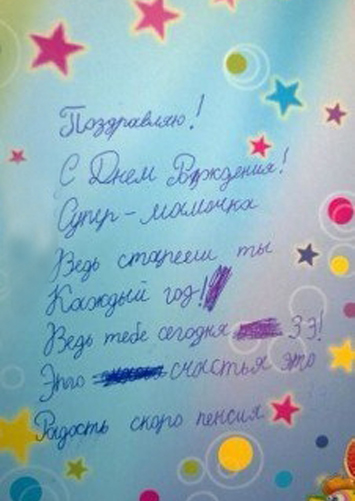 Поздравляю!
С Днем Рождения!
Супер-мамочка
Ведь старееш ты
Каждый год!
Ведь тебе сегодня 33!
Это счастья это
Радость скоро пенсия